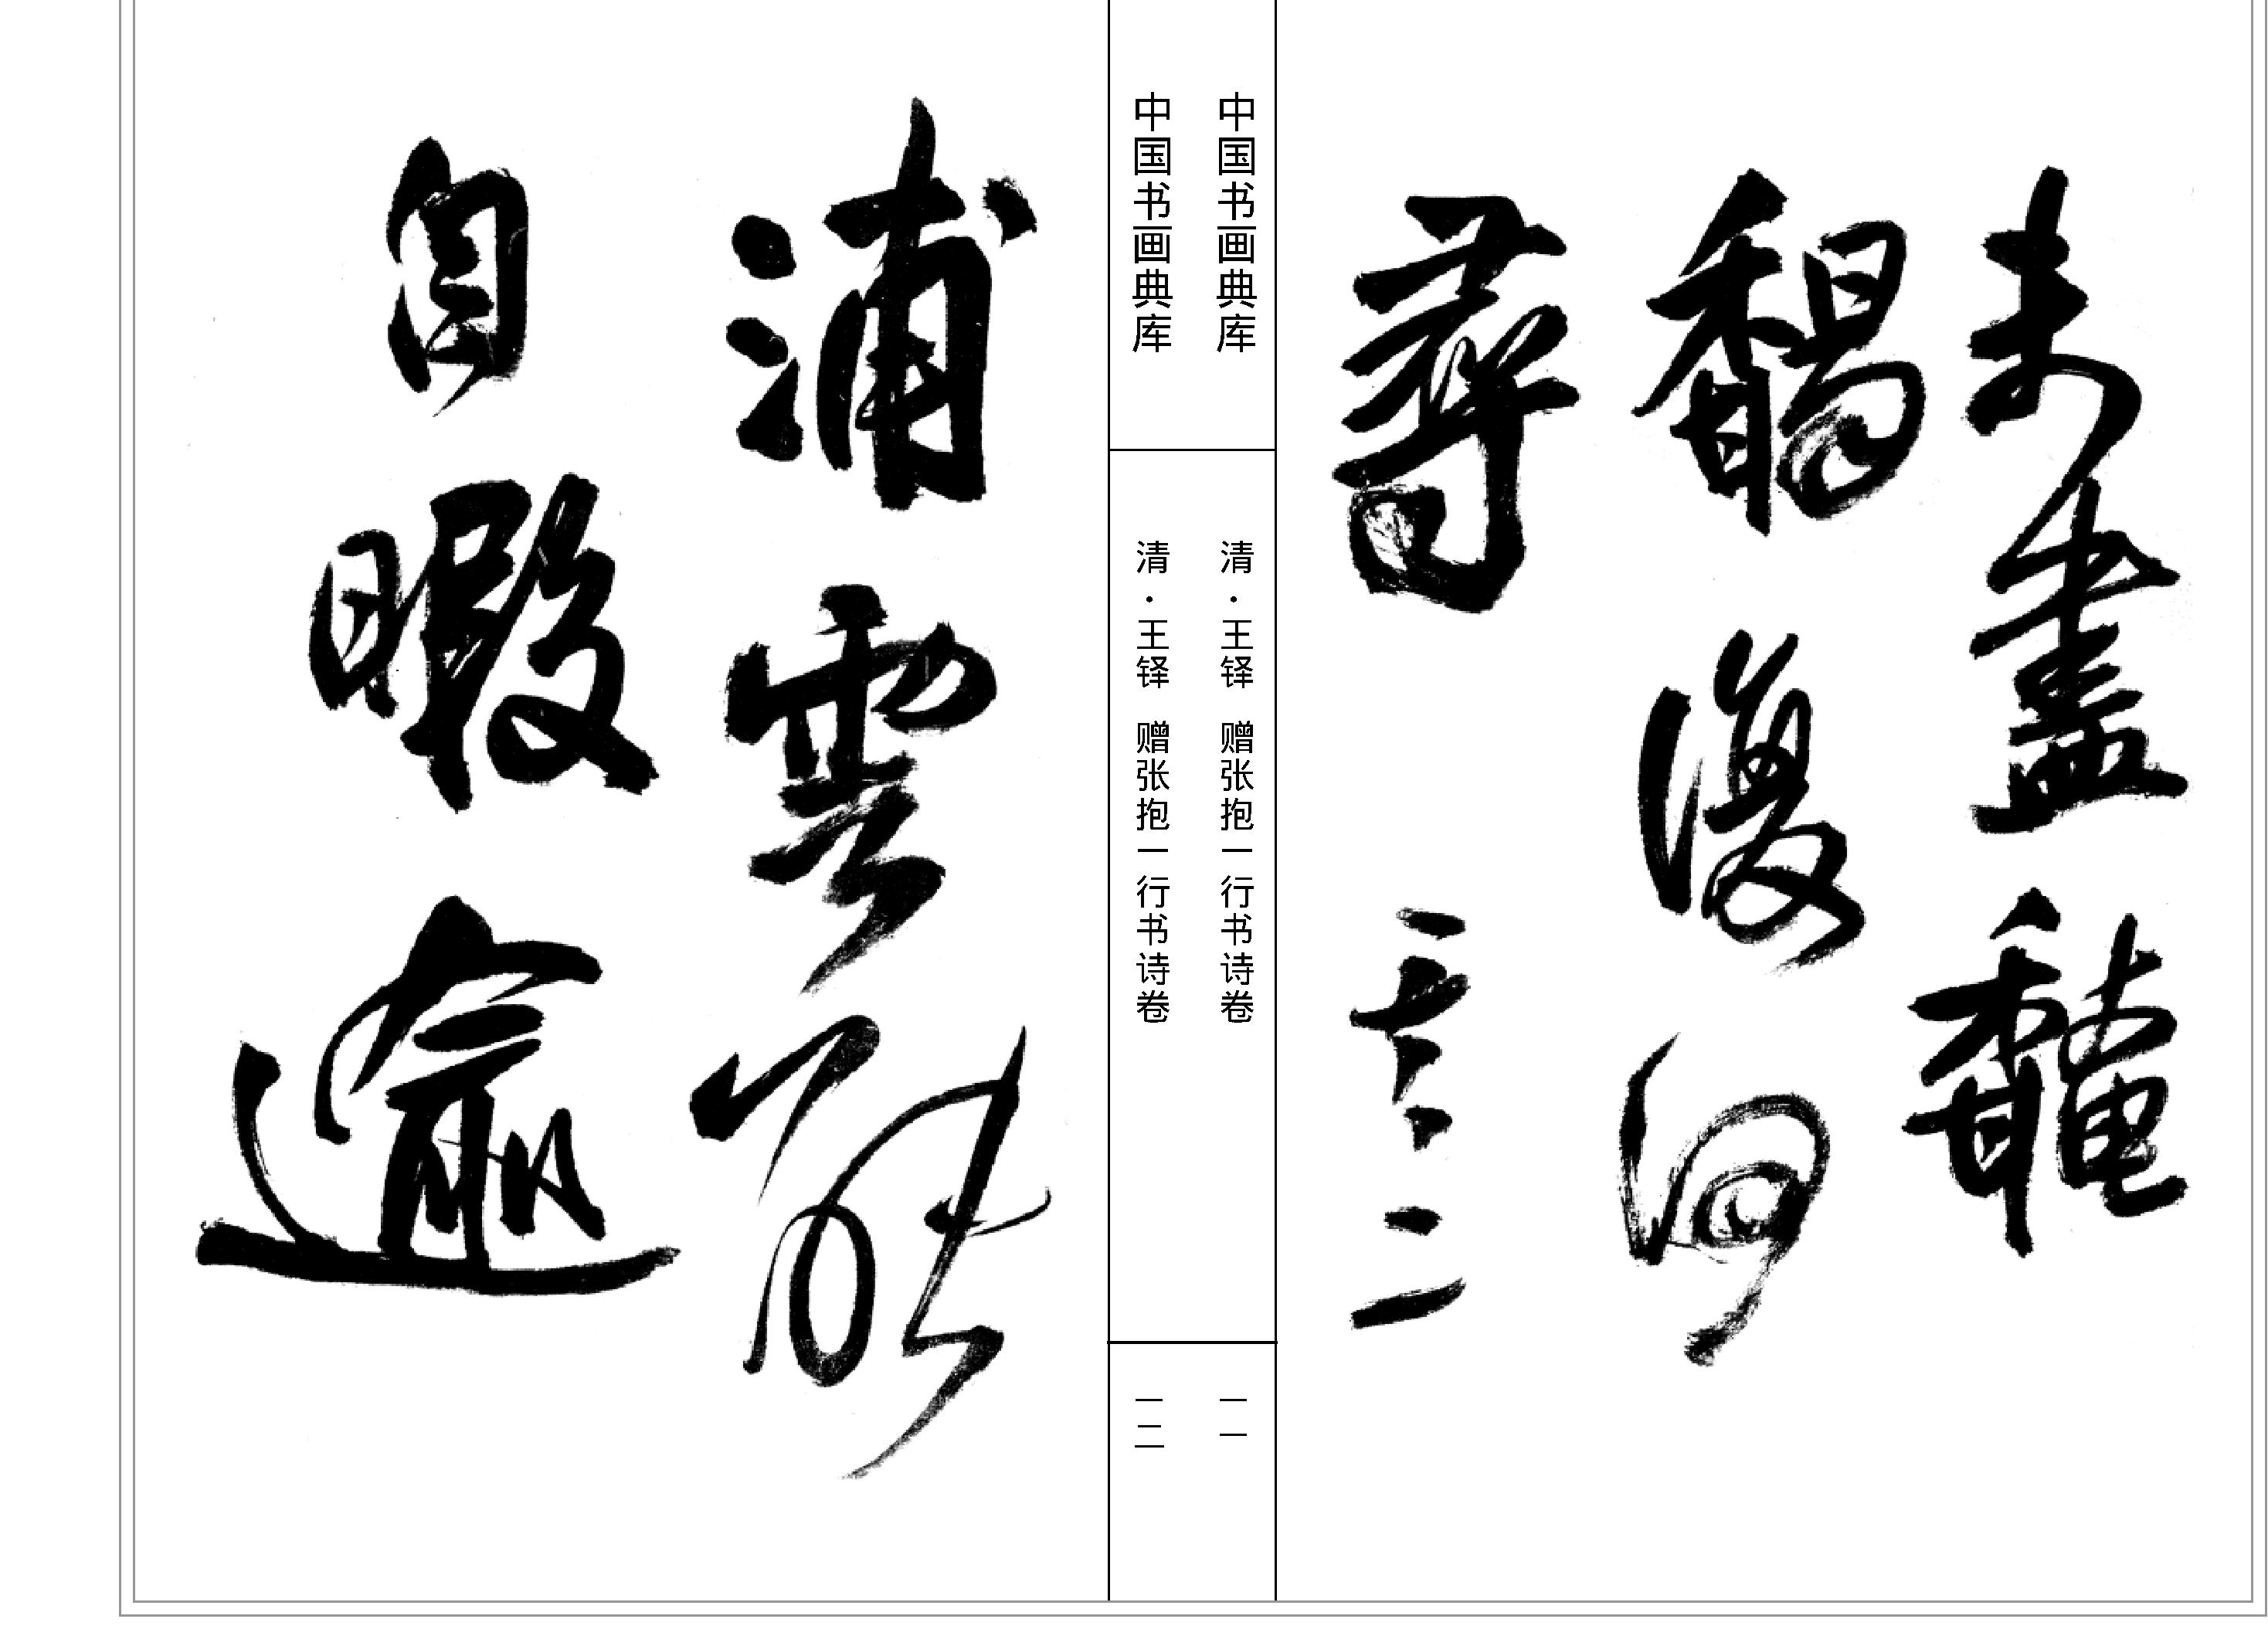 未盡馣
馤復何
尋 其二
中国书画典库 清·王铎 赠张抱一行书诗卷 一一
中国书画典库 清·王铎 赠张抱一行书诗卷 一二
浦雲能
自暇逾